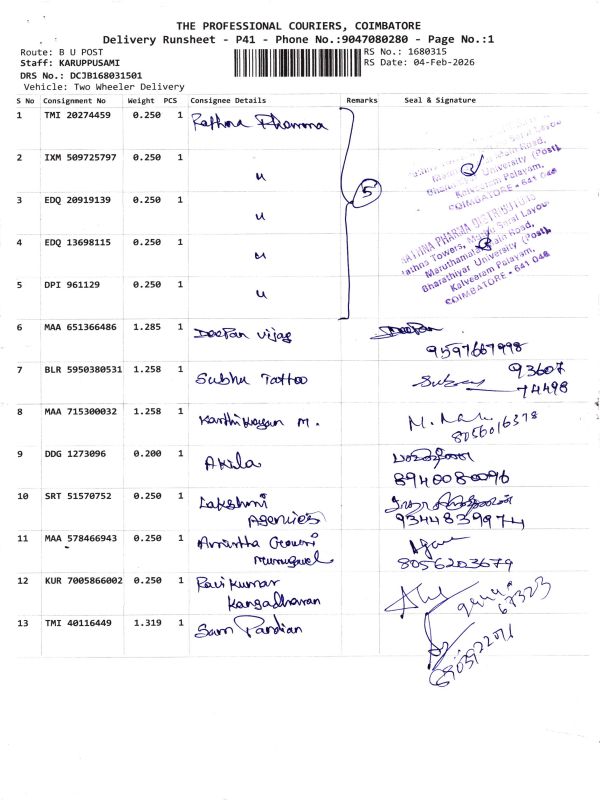 THE PROFESSIONAL COURIERS, COIMBATORE
Delivery Runsheet - P41 - Phone No.:9047080280 - Page No.:1
Route: B U POST
RS No.: 1680315
Staff: KARUPPUSAMI
RS Date: 04-Feb-2026
DRS No.: DCJB168031501
Vehicle: Two Wheeler Delivery
S No Consignment No Weight PCS Consignee Details Remarks Seal & Signature
1 TMI 20274459 0.250 1 Rathna Pharma
2 IXM 509725797 0.250 1 "
Bharathiyar University (Post),
Kalveeram Palayam,
COIMBATORE - 641 046
5
3 EDQ 20919139 0.250 1 "
RATHNA PHARMA DISTRIBUTORS
4 EDQ 13698115 0.250 1 "
Bharathiyar University (Post),
Kalveeram Palayam,
COIMBATORE - 641 046
5 DPI 961129 0.250 1 "
6 MAA 651366486 1.285 1 Deepan Vijay Deepan
9597667998
7 BLR 5950380531 1.258 1 Subhu Tattoo 93607
74498
8 MAA 715300032 1.258 1 Karthikayan M.
8056016378
9 DDG 1273096 0.200 1 Akila
8940080096
10 SRT 51570752 0.250 1 Lakshmi
Agencies
9344839974
11 MAA 578466943 0.250 1 Amirtha Gowri
Murugavel
8056203679
12 KUR 7005866002 0.250 1 Ravi Kumar
Kangadharan
67323
13 TMI 40116449 1.319 1 Sam Pandian